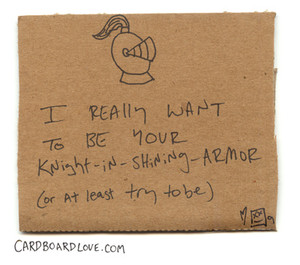 I REALLY WANT
TO BE YOUR
KNIGHT-IN-SHINING-ARMOR
(or At least try to be)
CARDBOARDLOVE.COM